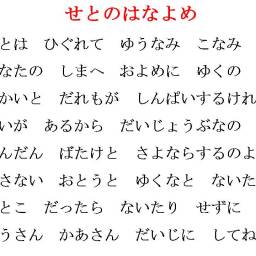 せとのはなよめ
とは　ひぐれて　ゆうなみ　こなみ
なたの　しまへ　およめに　ゆくの
かいと　だれもが　しんぱいするけれ
いが　あるから　だいじょうぶなの
んだん　ばたけと　さよならするのよ
さない　おとうと　ゆくなと　ないた
とこ　だったら　ないたり　せずに
うさん　かあさん　だいじに　してね